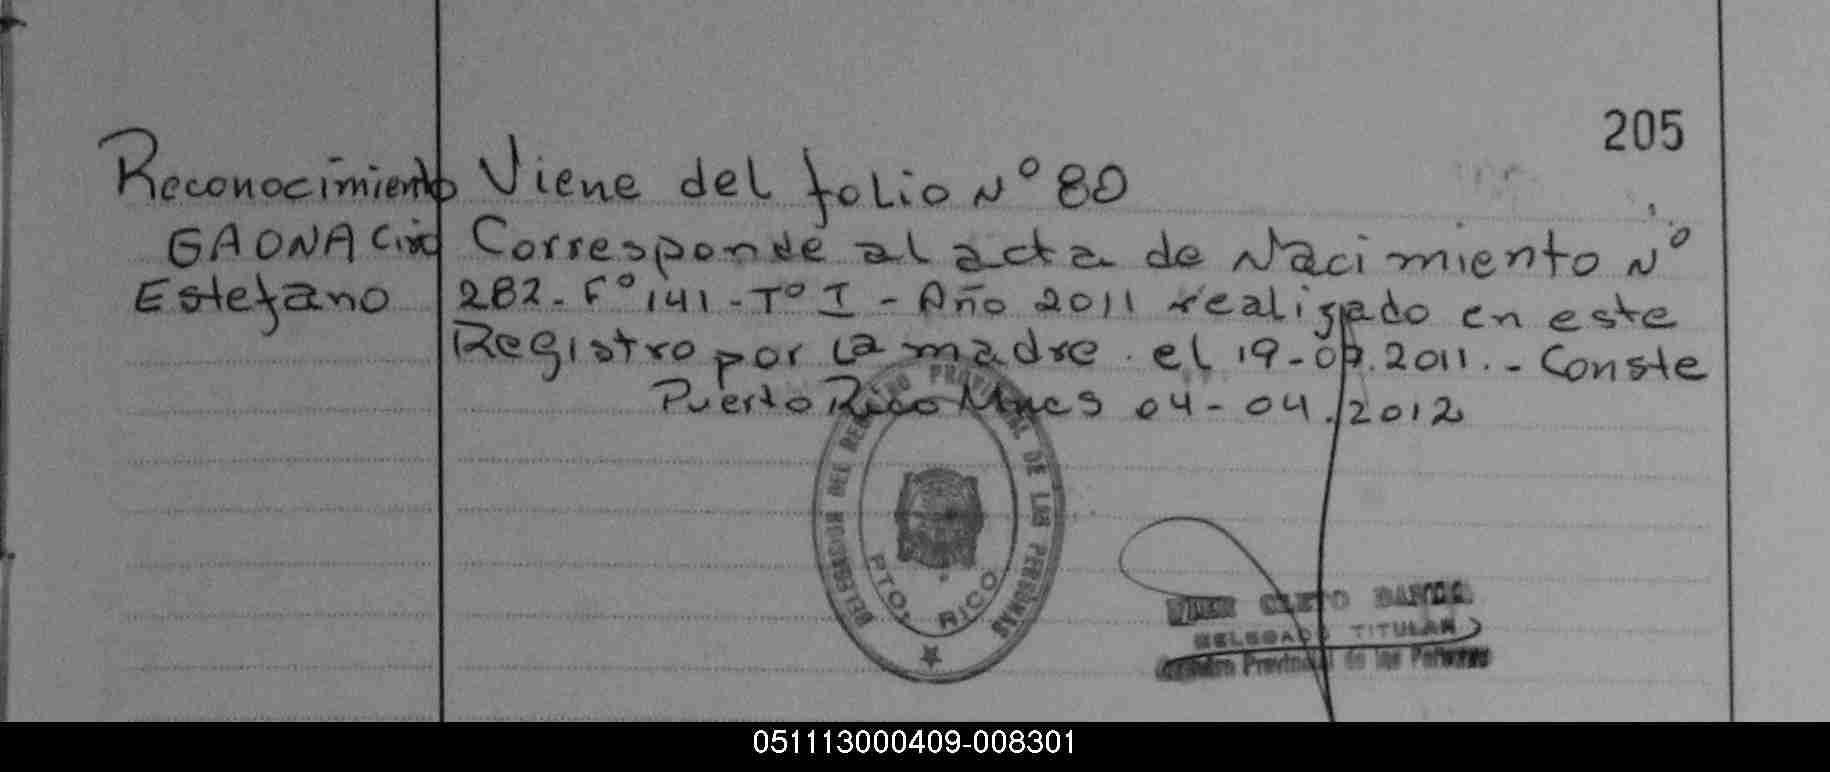 205
Reconocimiento
GAONA Ciro
Estefano
Viene del folio N° 80
Corresponde al acta de Nacimiento N°
282 - F° 141 - T° I - Año 2011 realizado en este
Registro por la madre. el 19-07.2011. - Conste
Puerto Rico Mnes 04-04.2012
DELEGACION DEL REGISTRO PROVINCIAL DE LAS PERSONAS
PTO. RICO
CLETO
DELEGADO TITULAR
Provincial de las Personas
051113000409-008301